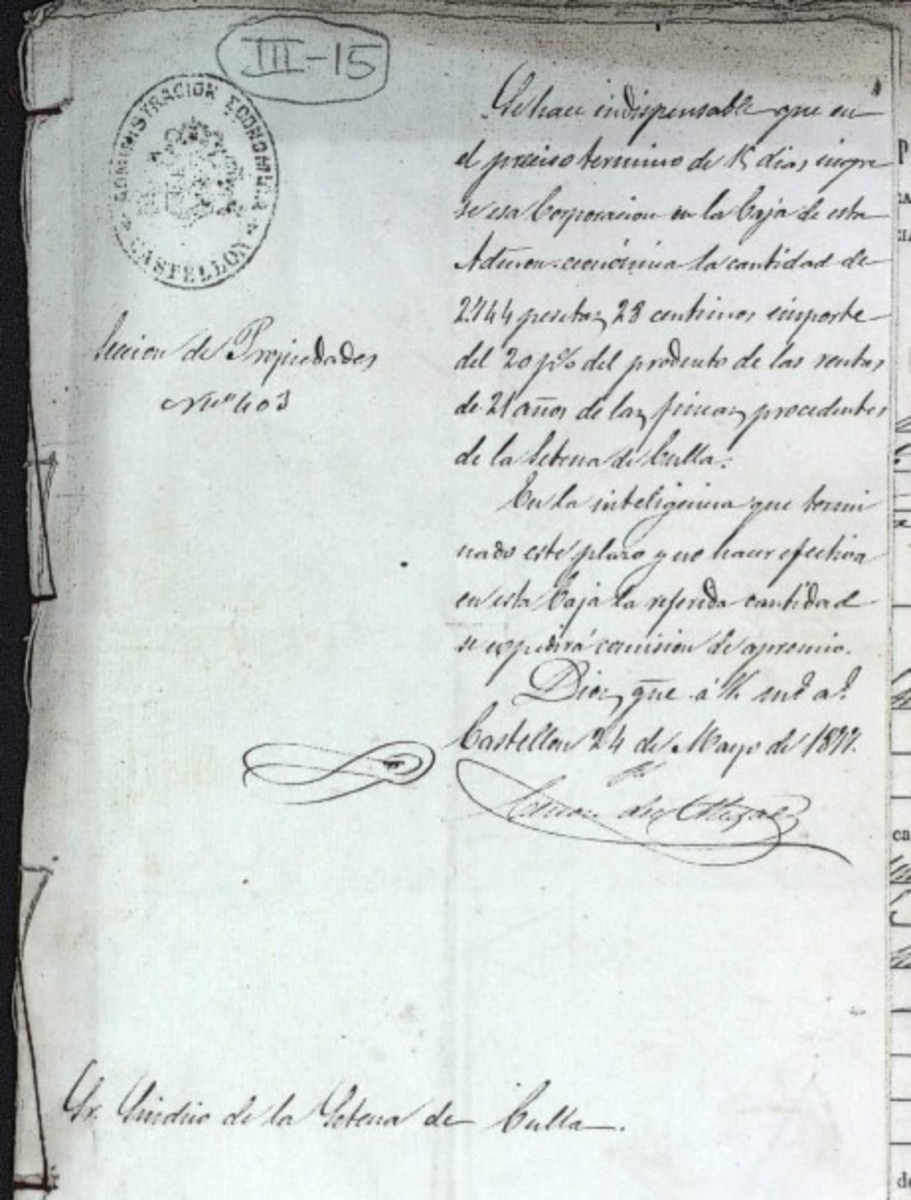 III-15
ADMINISTRACION ECONOMICA
* CASTELLON *
Seccion de Propiedades
Nº 403
Se hace indispensable que en
el preciso termino de 15 dias ingre
se esa Corporacion en la Caja de esta
Admon. económica la cantidad de
2.144 pesetas 28 centimos importe
del 20 p% del producto de las rentas
de 21 años de las fincas procedentes
de la Setena de Culla.
En la inteligencia que termi
nado este plazo y no hacer efectiva
en esta Caja la referida cantidad
se expedirá comision de apremio.
Dios gue á V. ms as
Castellon 24 de Mayo de 1877.
Sr. Sindico de la Setena de Culla.